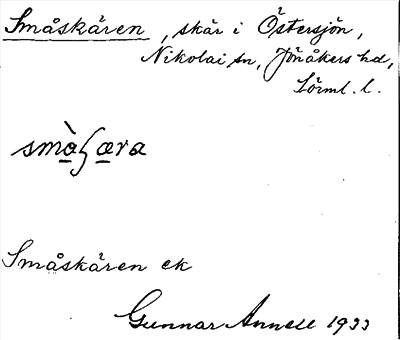 Småskären, skär i Östersjön,
Nikolai sn, Jönåkers hd,
Sörml. l.
smàʃæra
Småskären ek
Gunnar Annell 1933